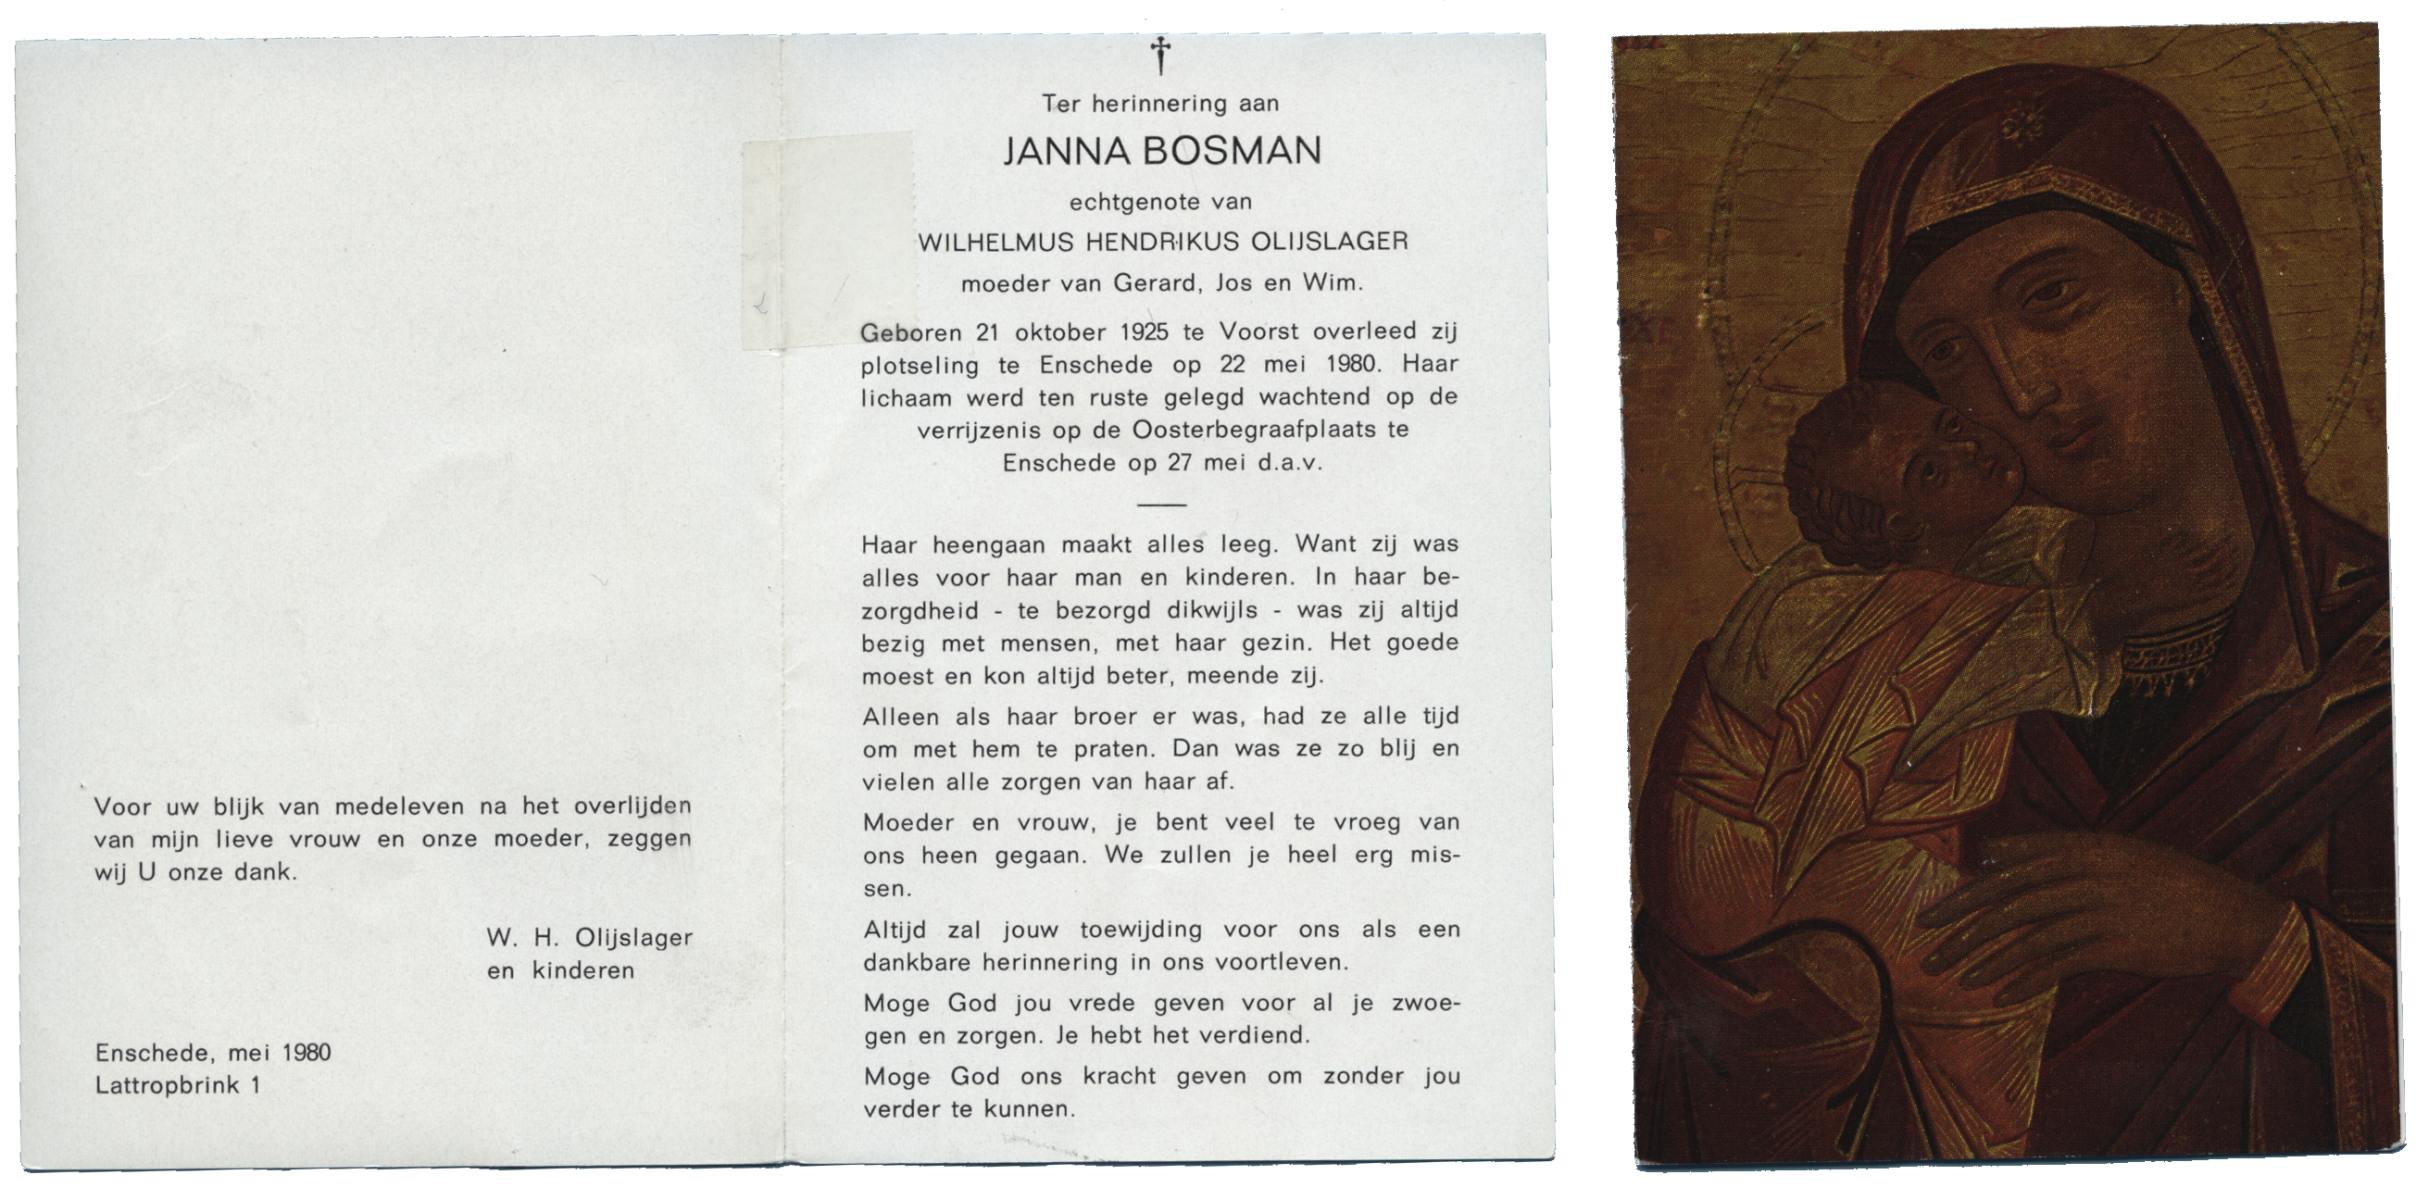 Voor uw blijk van medeleven na het overlijden
van mijn lieve vrouw en onze moeder, zeggen
wij U onze dank.
W. H. Olijslager
en kinderen
Enschede, mei 1980
Lattropbrink 1
Ter herinnering aan
JANNA BOSMAN
echtgenote van
WILHELMUS HENDRIKUS OLIJSLAGER
moeder van Gerard, Jos en Wim.
Geboren 21 oktober 1925 te Voorst overleed zij
plotseling te Enschede op 22 mei 1980. Haar
lichaam werd ten ruste gelegd wachtend op de
verrijzenis op de Oosterbegraafplaats te
Enschede op 27 mei d.a.v.
Haar heengaan maakt alles leeg. Want zij was
alles voor haar man en kinderen. In haar be-
zorgdheid - te bezorgd dikwijls - was zij altijd
bezig met mensen, met haar gezin. Het goede
moest en kon altijd beter, meende zij.
Alleen als haar broer er was, had ze alle tijd
om met hem te praten. Dan was ze zo blij en
vielen alle zorgen van haar af.
Moeder en vrouw, je bent veel te vroeg van
ons heen gegaan. We zullen je heel erg mis-
sen.
Altijd zal jouw toewijding voor ons als een
dankbare herinnering in ons voortleven.
Moge God jou vrede geven voor al je zwoe-
gen en zorgen. Je hebt het verdiend.
Moge God ons kracht geven om zonder jou
verder te kunnen.